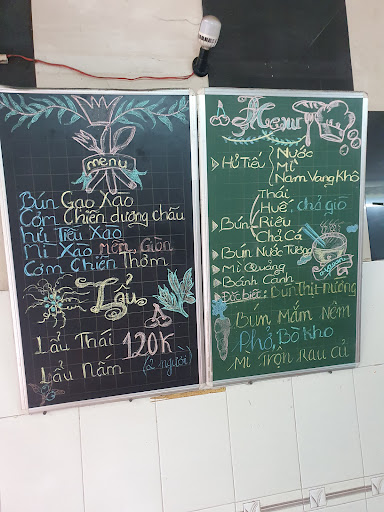 menu
Bún Gạo Xào
Cơm Chiên dương châu
Hủ Tiếu Xào
Mì Xào Mềm, Giòn
Cơm Chiên Thơm
Lẩu
Lẩu Thái
Lẩu Nấm
120K
(2 người)
Menu
Hủ Tiếu
Nước
Mì
Nam Vang Khô
Bún
Thái
Huế, chả giò
Riêu
Chả Cá
Bún Nước Tương
Mì Quảng
Bánh Canh
Đặc biệt: Bún thịt nướng
Bún Mắm Nêm
Phở, Bò Kho
Mì Trộn Rau Củ